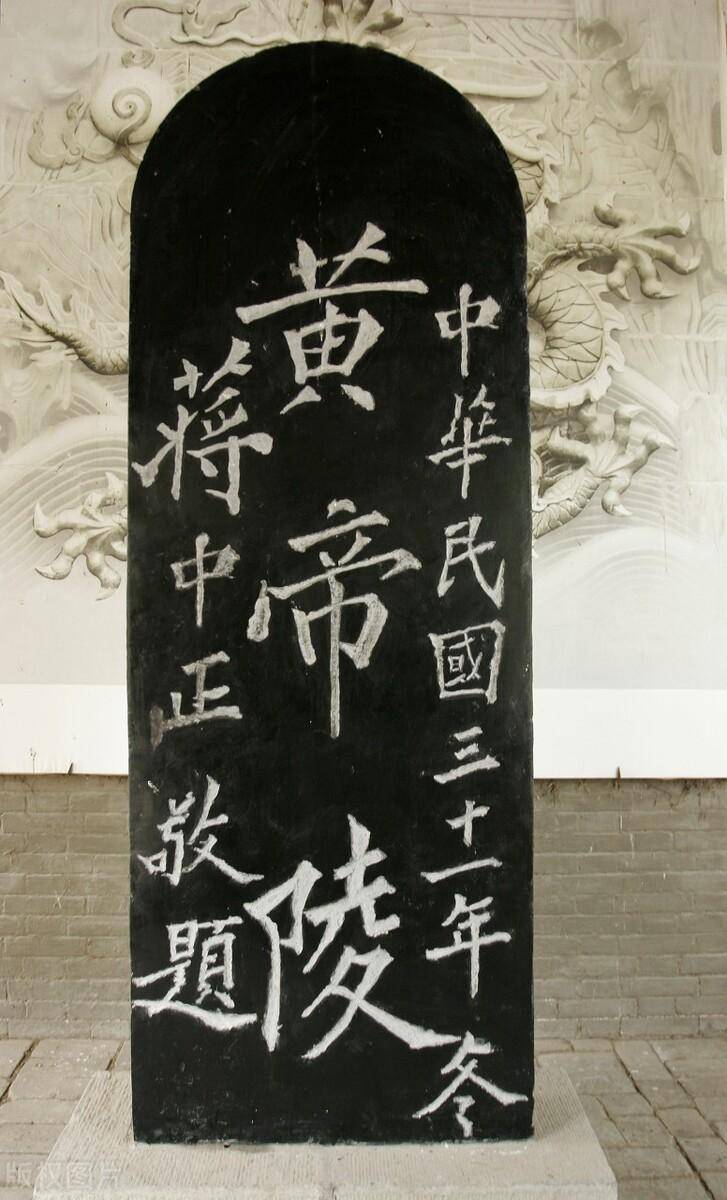 中華民國三十一年冬
黄帝陵
蔣中正敬題
版权图片